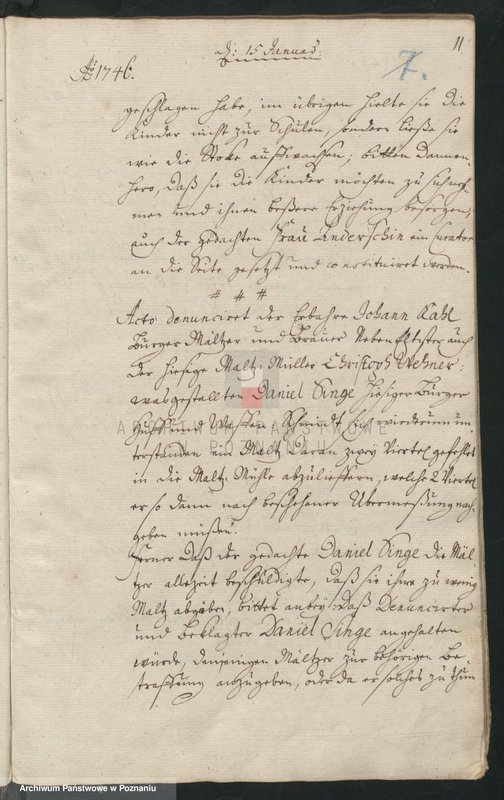 11
d: 15 Januar:
Ao 1746.
7.
geschlagen habe, im übrigen hielte sie die
Kinder nicht zur Schulen, sondern ließe sie
wie die Stoke auffwachsen; bitten dannen-
hero, daß sie die Kinder möchten zu sich neh-
men und ihnen beßere Erziehung besorgen,
auch der gedachten Frau Enderschin ein Curator
an die Seite gesetzt und constituiret werden.
# # #
Acto denunciret der Erbahre Johann Kahl
Bürger Mältzer und Brauer Neben Eltister auch
der hiesige Maltz-Müller Christoph Wehner:
wasgestallten Daniel Singe hiesiger Bürger
Huff und Waffen Schmidt sich wiederum un-
terstanden ein Maltz daran zwey Viertel gefehlet
in die Maltz Mühle abzulieffern, welche 2 Viertel
er so dann nach beschehener Übermeßung nach-
geben müßen.
Ferner daß der gedachte Daniel Singe die Mäl-
tzer allezeit beschuldigte, daß sie ihme zu wenig
Maltz abgäben, bittet anbey: daß Denuncirter
und Beklagter Daniel Singe angehalten
würde, denjenigen Mältzer zur behörigen Be-
straffung anzugeben, oder da er solches zu thun
ARCHIWUM PAŃSTWOWE
W POZNANIU
Archiwum Państwowe w Poznaniu